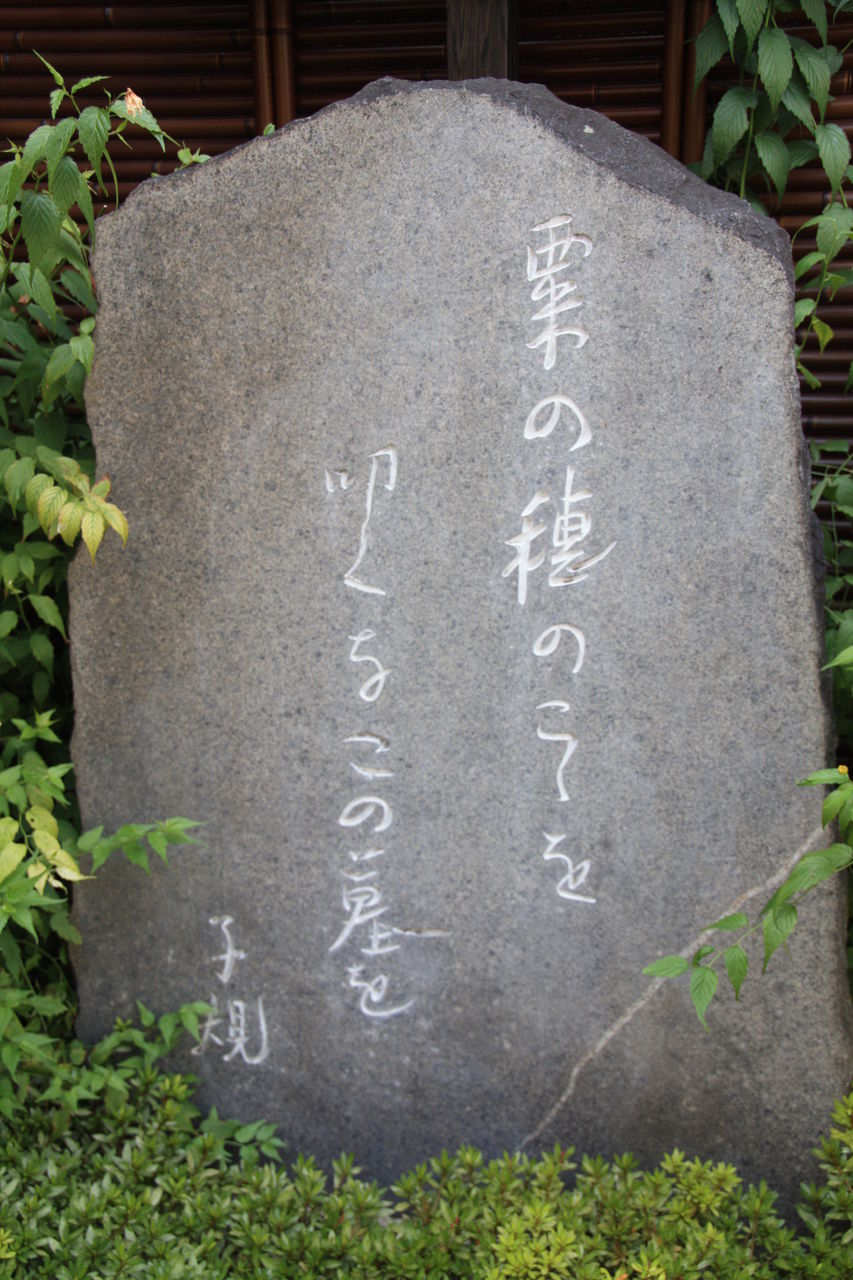 粟の穂のこゝを
叩くなこの墓を
子規